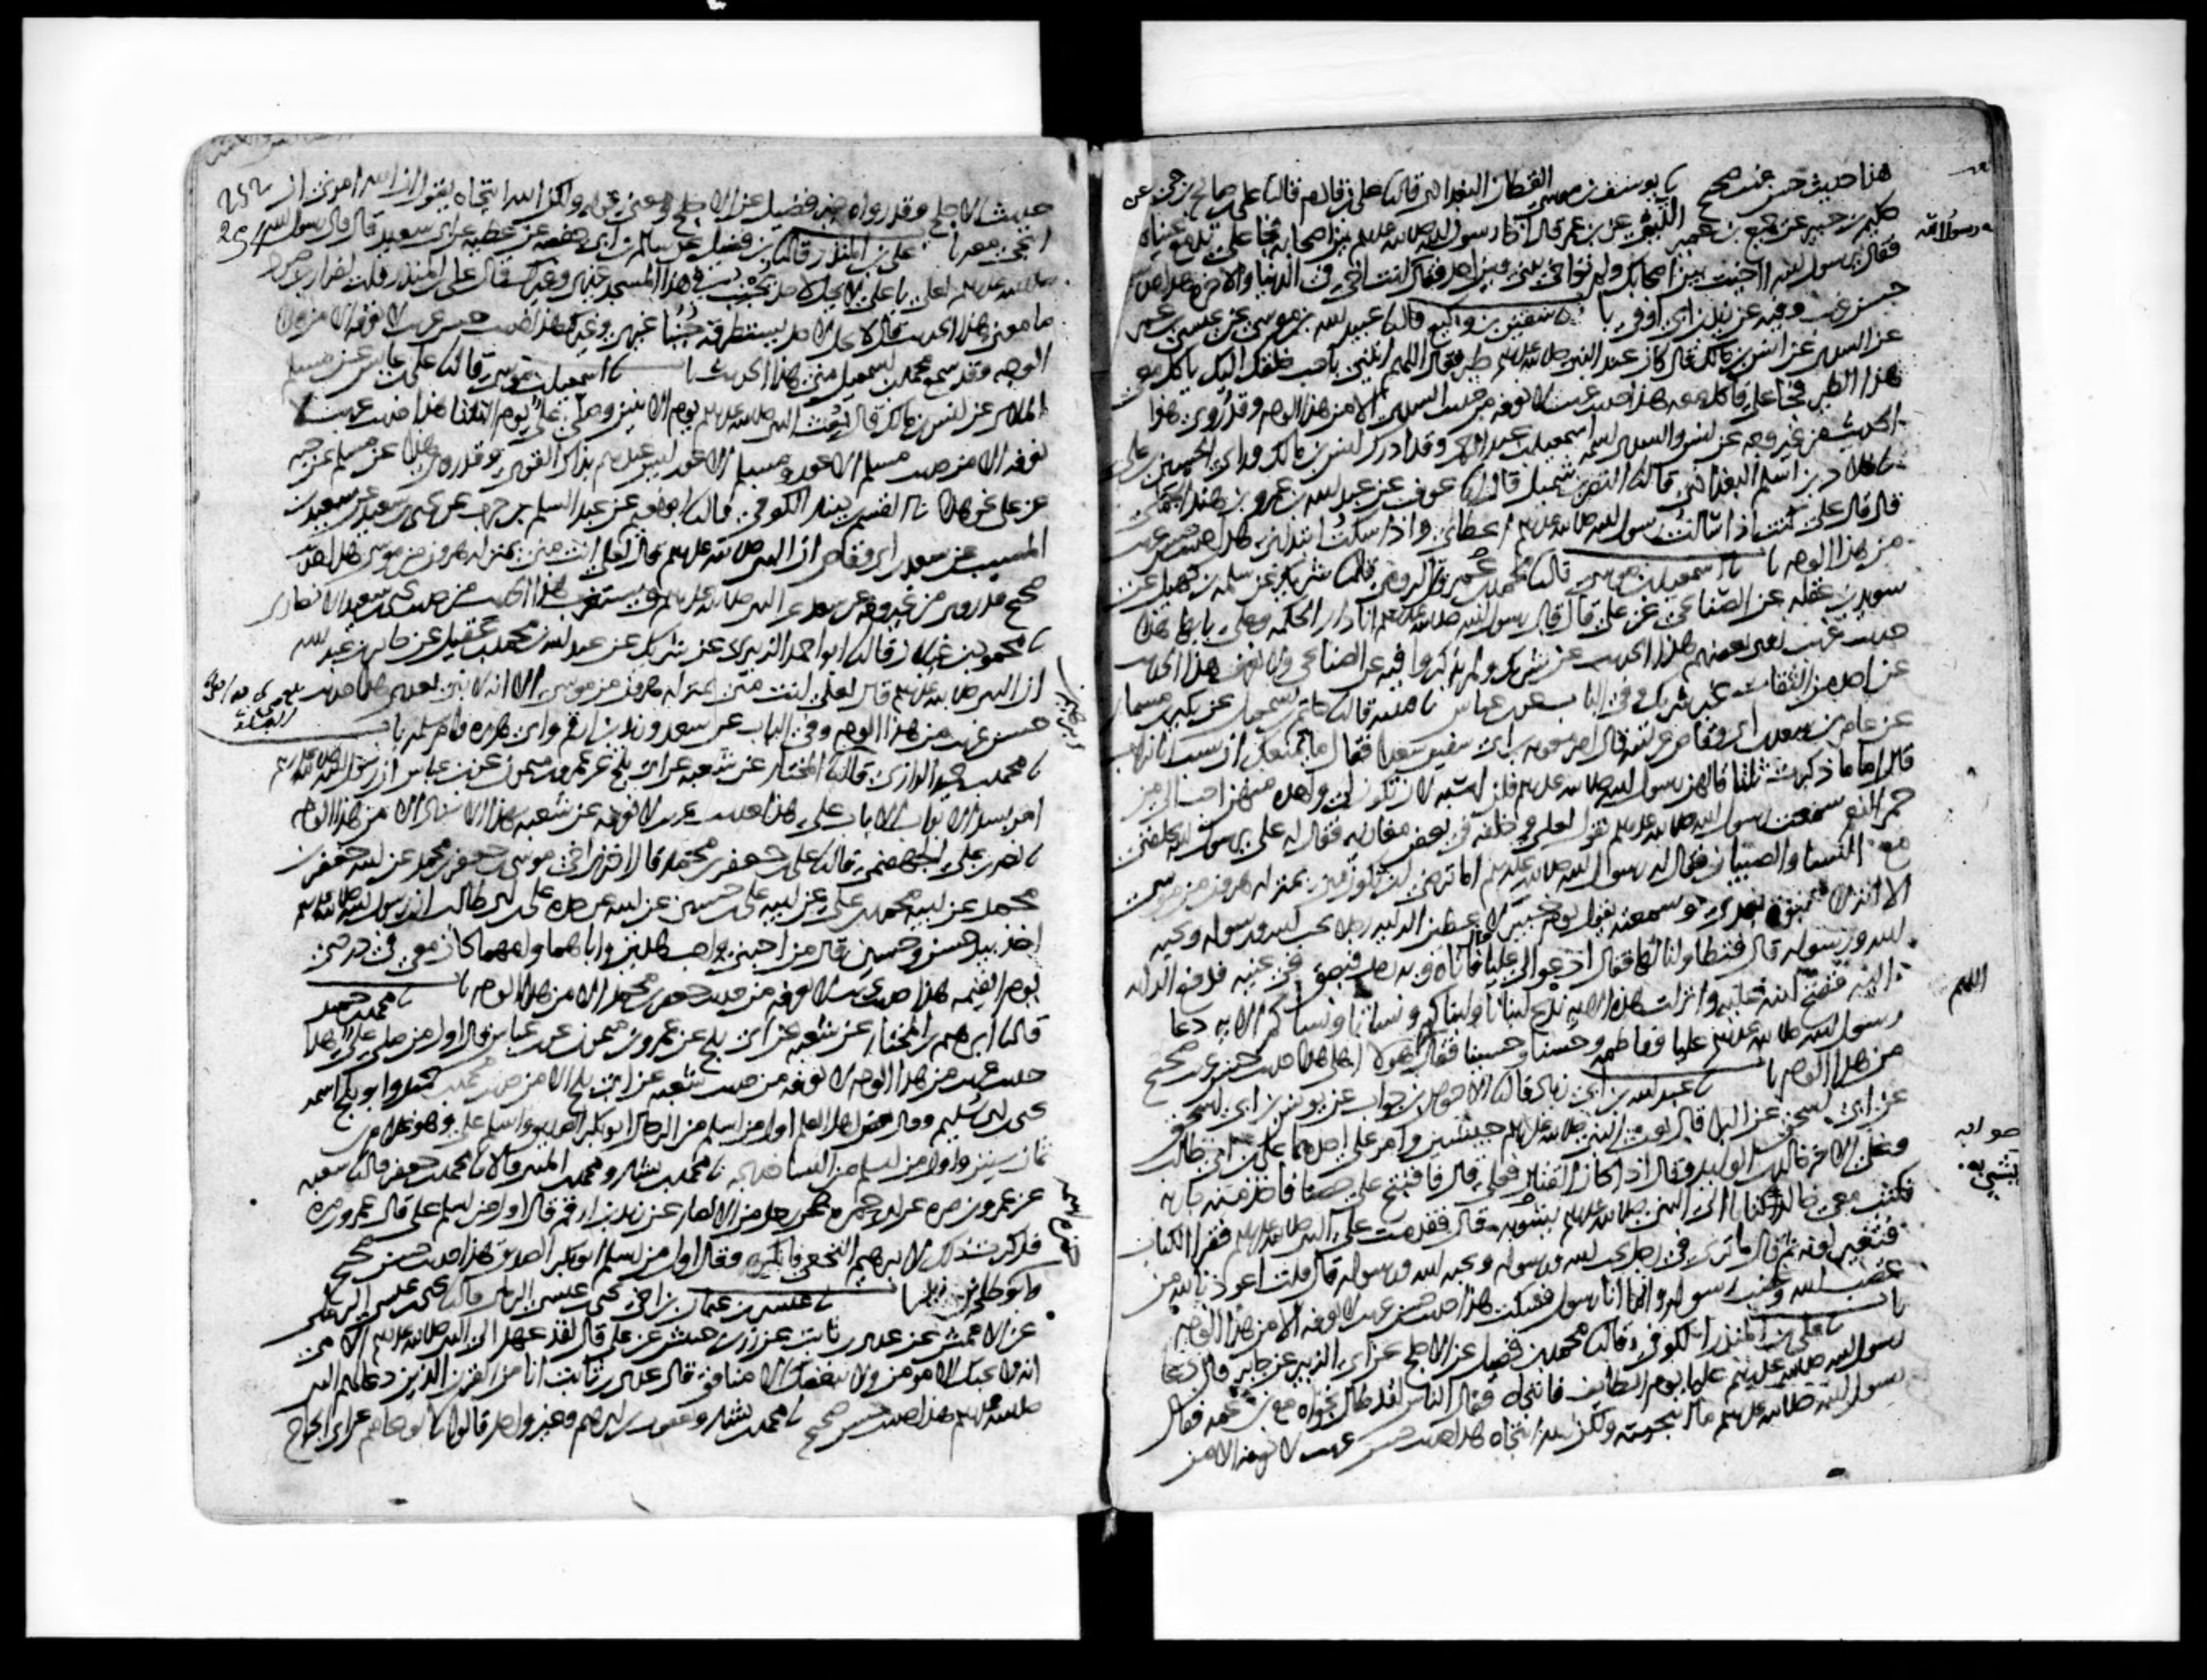 هذا حديث حسن غريب صحيح نا يوسف بن موسى القطان البغدادي قال نا علي بن قادم قال نا علي بن صالح بن حي عن
حكيم بن جبير عن جميع بن عمير التيمي عن بن عمر قال آخا رسول الله صلى الله عليه وسلم بين اصحابه فجا علي تدمع عيناه
فقال يرسول الله آخيت بين اصحابك ولم تواخ بيني وبين احد فقال انت اخي في الدنيا والاخره هذا حديث
حسن غريب وفيه عن زيد بن ابي اوفى با نا سفين بن وكيع قال نا عبيد الله بن موسى عن عيسى بن عمر
عن السدي عن انس بن مالك قال كان عند النبي صلى الله عليه وسلم طير فقال اللهم ائتني باحب خلقك اليك ياكل معي
هذا الطير فجا علي فاكل معه هذا حديث غريب لا نعرفه من حديث السدي الا من هذا الوجه وقد روي هذا
الحديث من غير وجه عن انس والسدي اسمه اسمعيل بن عبد الرحمن وقد ادرك انس بن مالك وراى الحسين بن علي
نا خلاد بن اسلم البغدادي قال نا النضر بن شميل قال نا عوف عن عبد الله بن عمرو بن هند الجملي
قال قال علي كنت اذا سالت رسول الله صلى الله عليه وسلم اعطاني واذا سكت ابتداني هذا حديث حسن غريب
من هذا الوجه با نا اسمعيل بن موسى قال نا محمد بن عمر بن الرومي قال نا شريك عن سلمه بن كهيل عن
سويد بن غفله عن الصنابحي عن علي قال قال رسول الله صلى الله عليه وسلم انا دار الحكمه وعلي بابها هذا
حديث غريب روى بعضهم هذا الحديث عن شريك ولم يذكروا فيه عن الصنابحي ولا نعرف هذا الحديث
عن احد من الثقات غير شريك وفي الباب عن بن عباس نا قتيبه قال نا حاتم بن اسمعيل عن بكير بن مسمار
عن عامر بن سعد بن ابي وقاص عن ابيه قال امر معويه بن ابي سفين سعدا فقال ما يمنعك ان تسب ابا تراب
قال اما ما ذكرت ثلثا قالهن رسول الله صلى الله عليه وسلم فلن اسبه لان تكون لي واحده منهن احب الي من
حمر النعم سمعت رسول الله صلى الله عليه وسلم يقول لعلي وخلفه في بعض مغازيه فقال له علي يرسول الله تخلفني
مع النسا والصبيان فقال له رسول الله صلى الله عليه وسلم اما ترضى ان تكون مني بمنزله هرون من موسى
الا انه لا نبوه بعدي وسمعته يقول يوم خيبر لاعطين الرايه رجلا يحب الله ورسوله ويحبه
الله ورسوله قال فتطاولنا لها فقال ادعوا لي عليا فاتاه وبه رمد فبصق في عينيه فدفع الرايه
اليه ففتح الله عليه وانزلت هذه الايه ندع ابنانا وابناكم ونسانا ونساكم الايه دعا
رسول الله صلى الله عليه وسلم عليا وفاطمه وحسنا وحسينا فقال اللهم هولا اهلي هذا حديث حسن غريب صحيح
من هذا الوجه با نا عبد الله بن ابي زياد قال نا الاحوص بن جواب عن يونس بن ابي اسحق
عن ابي اسحق عن البرا قال بعث النبي صلى الله عليه وسلم جيشين وامر على احدهما علي بن ابي طالب
وعلى الاخر خالد بن الوليد وقال اذا كان القتال فعلي قال فافتتح علي حصنا فاخذ منه جاريه
فكتب معي خالد كتابا الى النبي صلى الله عليه وسلم يشوبه قال فقدمت على النبي صلى الله عليه وسلم فقرا الكتاب
فتغير لونه ثم قال ما ترى في رجل يحب الله ورسوله ويحبه الله ورسوله قال قلت اعوذ بالله من
غضب الله وغضب رسوله وانما انا رسول فسكت هذا حديث حسن غريب لا نعرفه الا من هذا الوجه
با نا علي بن المنذر الكوفي قال نا محمد بن فضيل عن الاجلح عن ابي الزبير عن جابر قال دعا
رسول الله صلى الله عليه وسلم عليا يوم الطايف فانتجاه فقال الناس لقد طال نجواه مع بن عمه فقال
رسول الله صلى الله عليه وسلم ما انتجيته ولكن الله انتجاه هذا حديث حسن غريب لا نعرفه الا من
اللهم
صوابه
يشي به
حديث الاجلح وقد رواه غير بن فضيل عن الاجلح ومعنى قوله ولكن الله انتجاه يقول ان الله امرني ان
انتجي معه با علي بن المنذر قال نا بن فضيل عن سالم بن ابي حفصه عن عطيه عن ابي سعيد قال قال رسول الله
صلى الله عليه وسلم لعلي يا علي لا يحل لاحد يجنب في هذا المسجد غيري وغيرك قال علي بن المنذر قلت لضرار بن صرد
ما معنى هذا الحديث قال لا يحل لاحد يستطرقه جنبا غيري وغيرك هذا حديث حسن غريب لا نعرفه الا من هذا
الوجه وقد سمع محمد بن اسمعيل مني هذا الحديث با نا اسمعيل بن موسى قال نا علي بن عابس عن مسلم
الملائي عن انس بن مالك قال بعث النبي صلى الله عليه وسلم يوم الاثنين وصلى علي يوم الثلثا هذا حديث غريب لا
نعرفه الا من حديث مسلم الاعور ومسلم الاعور ليس عندهم بذاك القوي وقد روي هذا عن مسلم عن حبه
عن علي نحو هذا نا القسم بن دينار الكوفي قال نا ابو نعيم عن عبد السلم بن حرب عن يحيى بن سعيد عن سعيد بن
المسيب عن سعد بن ابي وقاص ان النبي صلى الله عليه وسلم قال لعلي انت مني بمنزله هرون من موسى هذا حديث
صحيح قد روي من غير وجه عن سعد عن النبي صلى الله عليه وسلم ويستغرب هذا الحديث من حديث يحيى بن سعيد الانصاري
نا محمود بن غيلان قال نا ابو احمد الزبيري عن شريك عن عبد الله بن محمد بن عقيل عن جابر بن عبد الله
ان النبي صلى الله عليه وسلم قال لعلي انت مني بمنزله هرون من موسى الا انه لا نبي بعدي هذا حديث
حسن غريب من هذا الوجه وفي الباب عن سعد وزيد بن ارقم وابي هريره وام سلمه با
نا محمد بن حميد الرازي قال نا ابرهيم بن المختار عن شعبه عن ابي بلج عن عمرو بن ميمون عن بن عباس ان رسول الله صلى الله عليه وسلم
امر بسد الابواب الا باب علي هذا حديث غريب لا نعرفه عن شعبه بهذا الاسناد الا من هذا الوجه
نا نصر بن علي الجهضمي قال نا علي بن جعفر بن محمد قال اخبرني اخي موسى بن جعفر بن محمد عن ابيه جعفر بن
محمد عن ابيه محمد بن علي عن ابيه علي بن حسين عن ابيه عن جده علي بن ابي طالب ان رسول الله صلى الله عليه وسلم
اخذ بيد حسن وحسين قال من احبني واحب هذين واباهما وامهما كان معي في درجتي
يوم القيمه هذا حديث غريب لا نعرفه من حديث جعفر بن محمد الا من هذا الوجه با نا محمد بن حميد
قال نا ابرهيم بن المختار عن شعبه عن ابي بلج عن عمرو بن ميمون عن بن عباس قال اول من صلى علي هذا
حديث غريب من هذا الوجه لا نعرفه من حديث شعبه عن ابي بلج الا من حديث محمد بن حميد وابو بلج اسمه
يحيى بن ابي سليم وقال بعض اهل العلم اول من اسلم من الرجال ابو بكر الصديق واسلم علي وهو غلام بن
ثمان سنين واول من اسلم من النسا خديجه نا محمد بن بشار ومحمد بن المثنى قالا نا محمد بن جعفر قال نا شعبه
عن عمرو بن مره عن ابي حمزه رجل من الانصار عن زيد بن ارقم قال اول من اسلم علي قال عمرو بن مره
فذكرت ذلك لابرهيم النخعي فانكره وقال اول من اسلم ابو بكر الصديق هذا حديث حسن صحيح
نا عيسى بن عثمان بن اخي يحيى بن عيسى الرملي قال نا يحيى بن عيسى الرملي
عن الاعمش عن عدي بن ثابت عن زر بن حبيش عن علي قال لقد عهد الي النبي صلى الله عليه وسلم الامي
انه لا يحبك الا مومن ولا يبغضك الا منافق قال عدي بن ثابت انا من القرن الذين دعا لهم النبي
صلى الله عليه وسلم هذا حديث حسن صحيح نا محمد بن بشار ويعقوب بن ابرهيم وغير واحد قالوا نا ابو عاصم عن ابي الجراح